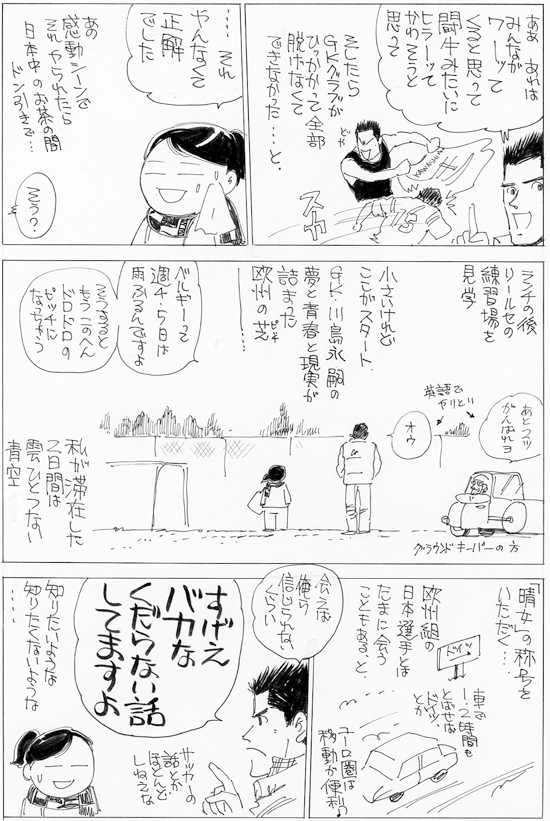 ああ あれは
みんなが
ワーッて
くると思って
闘牛みたいに
ヒラーッて
かわそうと
思って
そしたら
GKグラブが
ひっかかって全部
脱げなくて
できなかった…と。
どや
KAWASHIMA
スカ
…それ
やんなくて
正解
でした
あの
感動シーンで
それやられたら
日本中のお茶の間
ドン引きで…
そう?
ランチの後
リールセの
練習場を
見学
小さいけれど
ここがスタート.
GK・川島永嗣の
夢と青春と現実が
詰まった
欧州の芝
ピッチ
…
ベルギーって
週4.5日は
雨ふるんですよ
そうすると
もうこのへん
ドロドロの
ピッチに
なっちゃう
あと2ツ
がんばれヨ
英語で
やりとり
オウ
グラウンドキーパーの方
私が滞在した
2日間は
雲ひとつない
青空
「晴女」の称号を
いただく…。
ドイツ
車で
1.2時間も
とばせば
ドイツ、
とか
ユーロ圏は
移動が便利♪
欧州組の
日本選手とは
たまに会う
こともある、と.
会えば
俺ら
信じられない
くらい
すげえ
バカな
くだらない話
してますよ
サッカーの
話とか
ほとんど
しねえな
知りたいような
知りたくないような
……